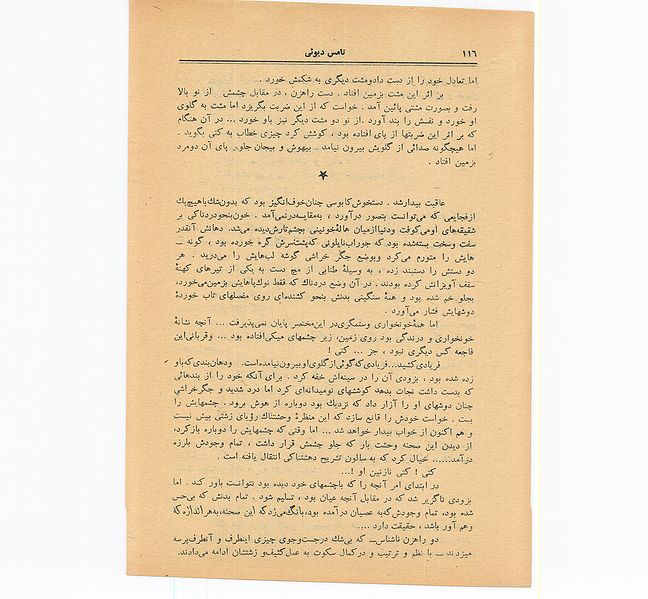 ۱۱٦
تامس دیوئی
اما تعادل خود را از دست داد و مشت دیگری به شکمش خورد .
بر اثر این مشت بزمین افتاد . دست راهزن ، در مقابل چشمش از نو بالا
رفت و بصورت مشتی پائین آمد . خواست که از این ضربت بگریزد اما مشت به گلوی
او خورد و نفسش را بند آورد . از نو دو مشت دیگر نیز باو خورد ... در آن هنگام
که بر اثر این ضربتها از پای افتاده بود ، کوشش کرد چیزی خطاب به کنی بگوید .
اما هیچگونه صدائی از گلویش بیرون نیامد . بیهوش و بیجان جلوی پای آن دومرد
بزمین افتاد .
★
عاقبت بیدار شد . دستخوش کابوسی چنان خوف انگیز بود که بدون شك با هیچ یك
از فجایعی که می‌توانست بتصور درآورد ، به مقایسه در نمی‌آمد . خون بنحو دردناکی بر
شقیقه‌های او می‌کوفت و دنیا از میان هالهٔ خونینی بچشم تارش دیده می‌شد. دهانش آنقدر
سفت و سخت بسته شده بود که جوراب نایلونی که پشت سرش گره خورده بود ، گونه ـ
هایش را متورم می‌کرد و بوضع جگر خراشی گوشه لب‌هایش را می‌درید . هر
دو دستش را دستبند زده ، به وسیلهٔ طنابی از مچ دست به یکی از تیرهای کهنهٔ
سقف آویزانش کرده بودند . در آن وضع دردناك که فقط نوك پاهایش بزمین می‌خورد،
بجلو خم شده بود و همهٔ سنگینی بدنش بنحو کشنده‌ای روی مفصلهای تاب خوردهٔ
دوشهایش فشار می‌آورد .
اما همهٔ خونخواری و ستمگری در این مختصر پایان نمی‌پذیرفت ... آنچه نشانهٔ
خونخواری و درندگی بود روی زمین، زیر چشمهای میکی افتاده بود ... و قربانی این
فاجعه کس دیگری نبود ، جز ... کنی !
فریادی کشید... فریادی که گوئی از گلوی او بیرون نیامده است. ودهان بندی که باو
زده شده بود ، بزودی آن را در سینه‌اش خفه کرد . برای آنکه خود را از بندهائی
که بدست داشت نجات بدهد کوششهای نومیدانه‌ای کرد اما درد شدید و جگر خراشی
چنان دوشهای او را آزار داد که نزدیك بود دوباره از هوش برود . چشمهایش را
بست . خواست خودش را قانع سازد که این منظرهٔ وحشتناك رؤیای زشتی بیش نیست
و هم اکنون از خواب بیدار خواهد شد ... اما وقتی که چشمهایش را دوباره باز کرد،
از دیدن این صحنه وحشت بار که جلو چشمش قرار داشت ، تمام وجودش بلرزه
درآمد...... خیال کرد که به سالون تشریح دهشتناکی انتقال یافته است .
کنی ! کنی نازنین او !...
در ابتدای امر آنچه را که باچشمهای خود دیده بود نتوانست باور کند . اما
بزودی ناگزیر شد که در مقابل آنچه عیان بود ، تسلیم شود . تمام بدنش که بی‌حس
شده بود، تمام وجودش که به عصیان درآمده بود، بانگ می‌زد که این صحنه، به هر اندازه که
وهم آور باشد ، حقیقت دارد ....
دو راهزن ناشناس که بی‌شك در جست‌وجوی چیزی اینطرف و آنطرف پرسه
میزدند ـ با نظم و ترتیب و در کمال سکوت به عمل کثیف و زشتشان ادامه می‌دادند.